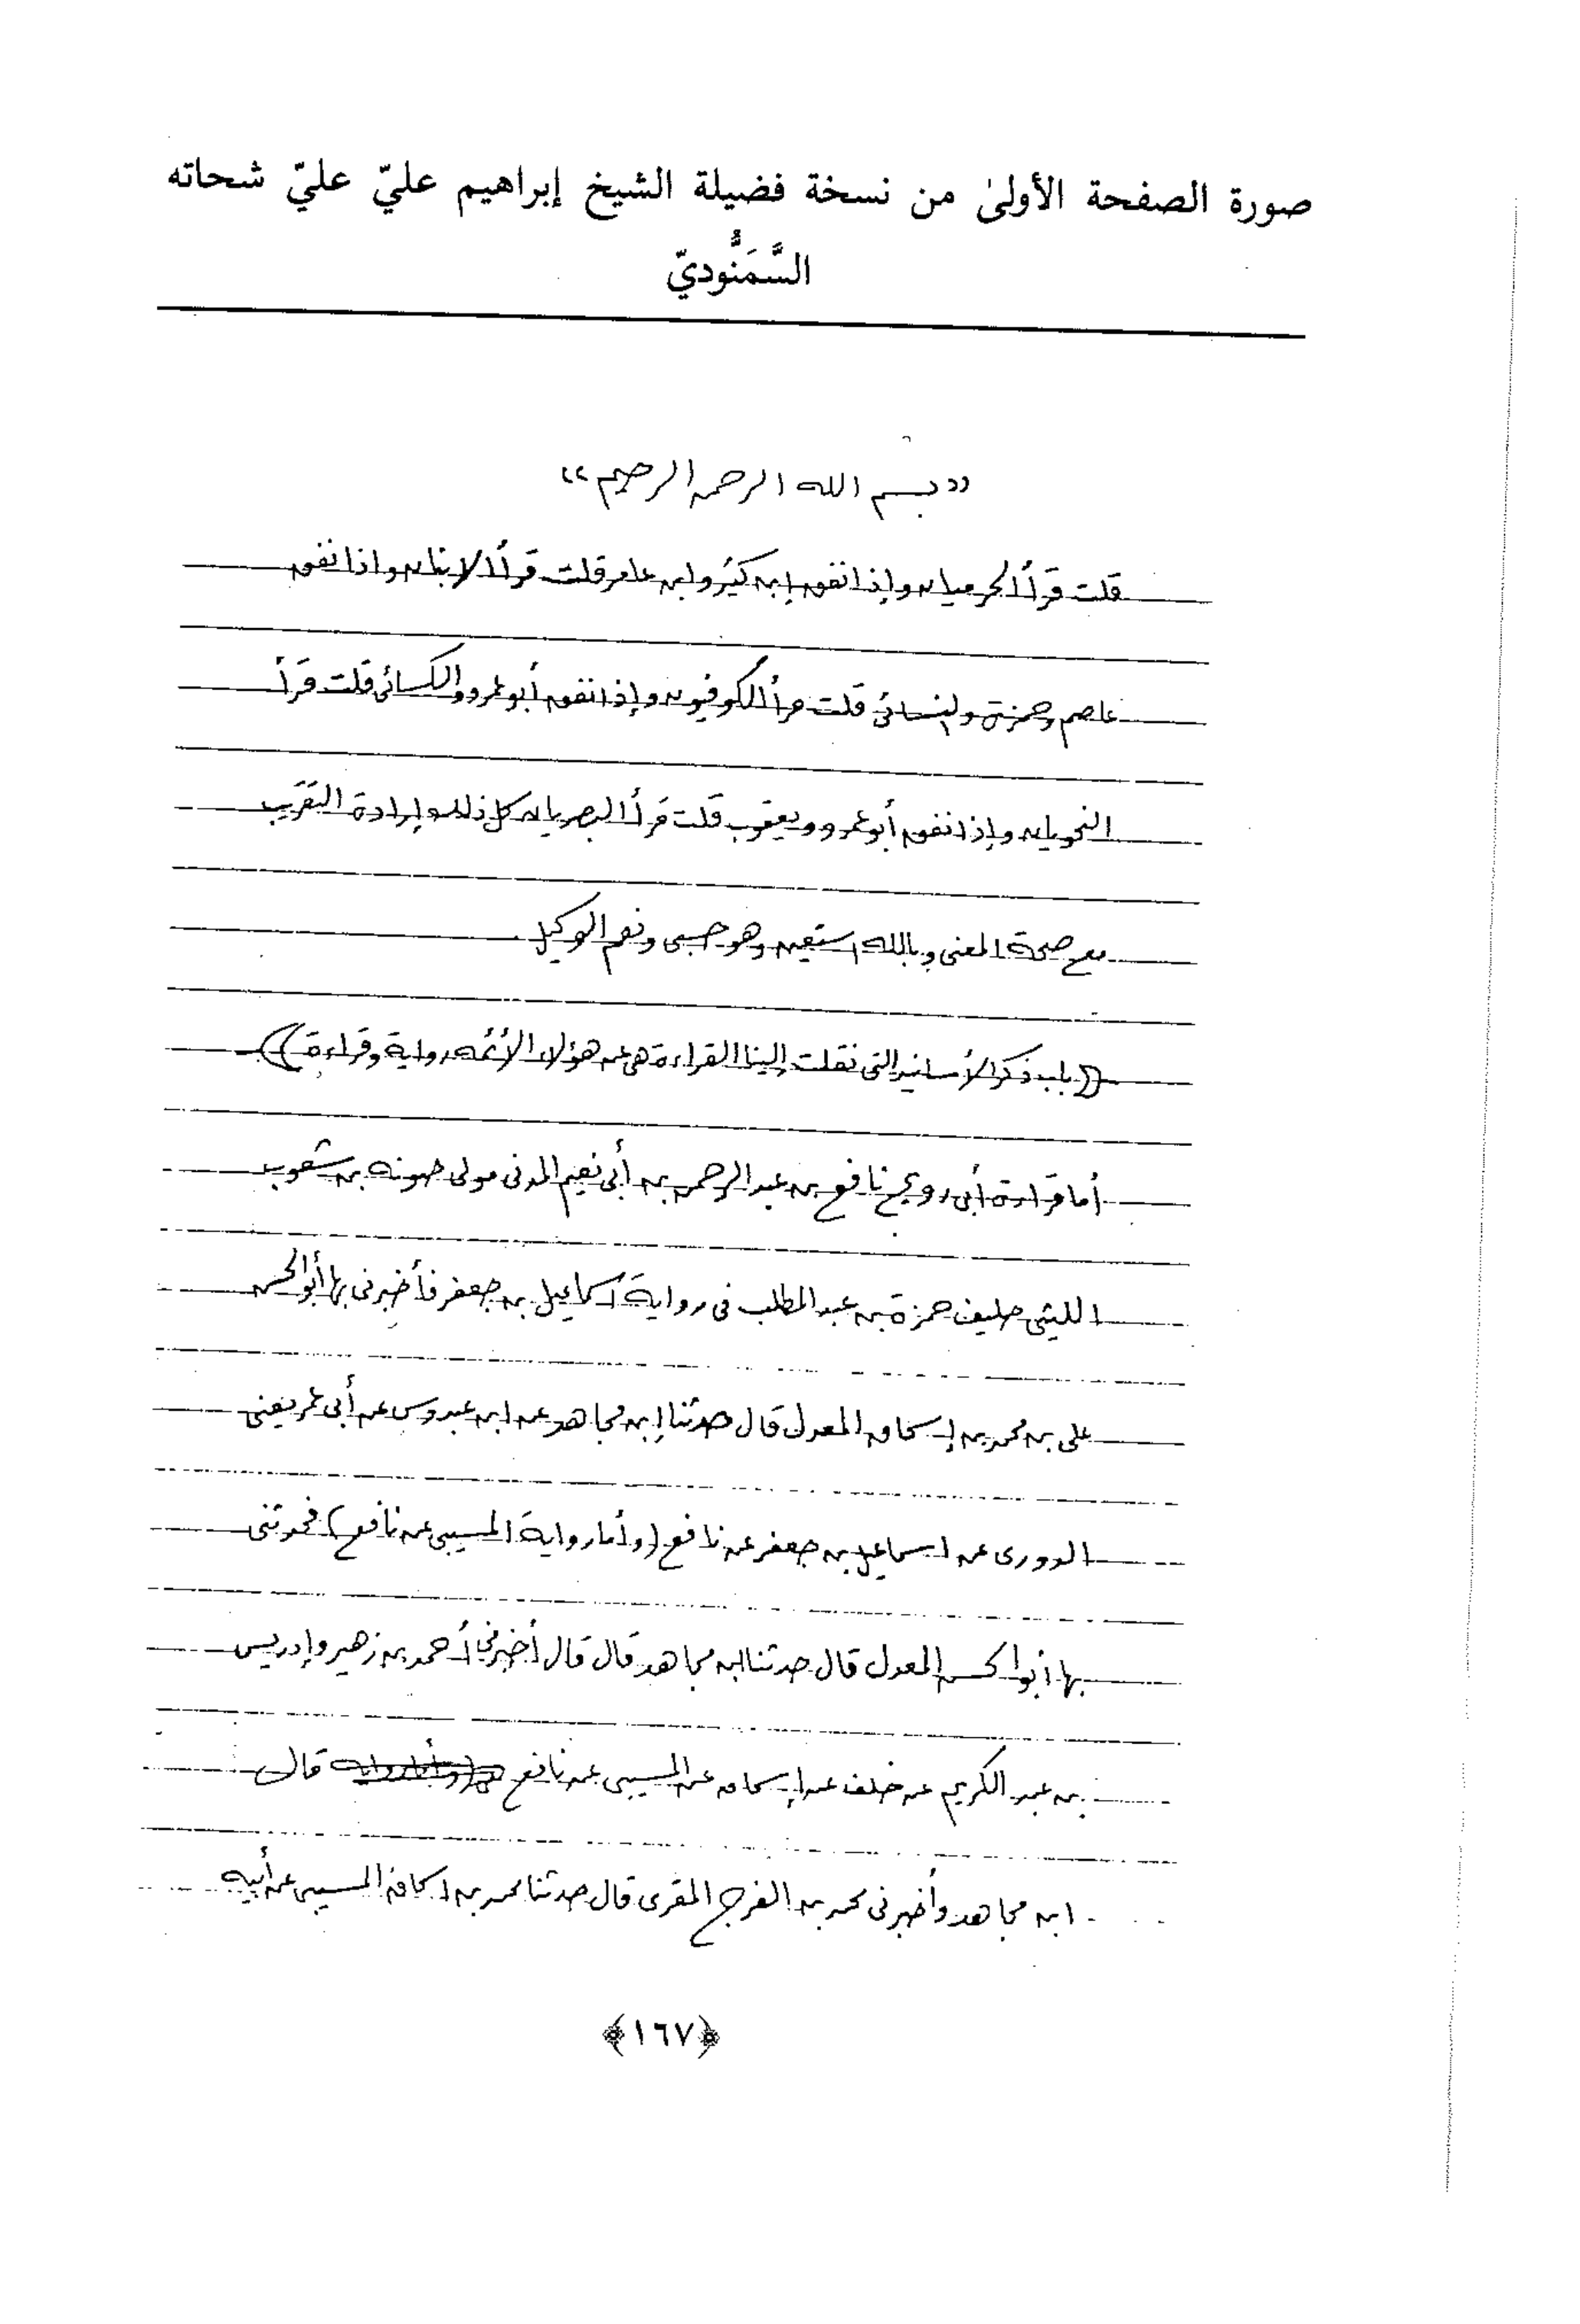 صورة الصفحة الأولىٰ من نسخة فضيلة الشيخ إبراهيم عليّ عليّ شحاته
السَّمَنُّوديّ
«بسم الله الرحمن الرحيم»
قلت قرأ الحرميان وإذا اتفق ابن كثير وابن عامر قلت قرأ الابنان وإذا اتفق
عاصم وحمزة والكسائى قلت قرأ الكوفيون وإذا اتفق أبو عمرو والكسائى قلت قرأ
النحويان وإذا اتفق أبو عمرو ويعقوب قلت قرأ البصريان كل ذلك إرادة التقريب
مع صحة المعنى وبالله استعين وهو حسبى ونعم الوكيل.
((باب ذكر الأسانيد التى نقلت إلينا القراءة عن هؤلاء الأئمة رواية وقراءة))
أما قراءة أبى رويم نافع بن عبد الرحمن بن أبى نعيم المدنى مولى جعونه بن شعوب
الليثى حليف حمزة بن عبد المطلب فى رواية إسماعيل بن جعفر فأخبرنى بها أبو الحسن
على بن محمد بن إسحاق المعدل قال حدثنا ابن مجاهد عن ابن عبدوس عن أبى عمر يعنى
الدورى عن اسماعيل بن جعفر عن نافع (وأما رواية المسيبى عن نافع) فحدثنى
بها أبو الحسن المعدل قال حدثنا ابن مجاهد قال قال أخبرنى أحمد بن زهير وإدريس
بن عبد الكريم عن خلف عن إسحاق عن المسيبى عن نافع قال
ابن مجاهد وأخبرنى محمد بن الفرج المقرى قال حدثنا محمد بن اسحاق المسيبى عن أبيه
﴿١٦٧﴾